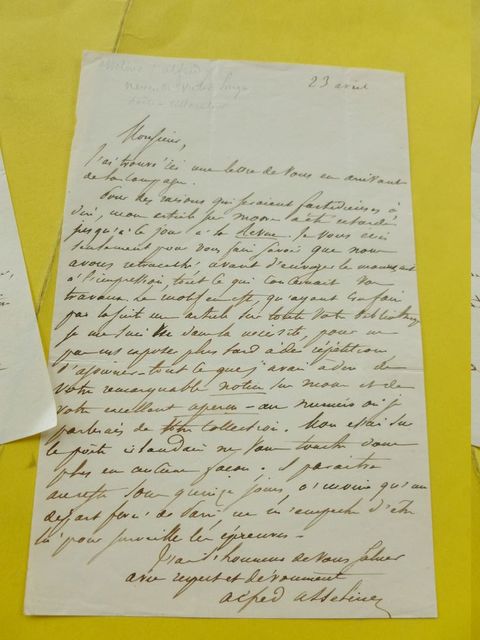 23 avril
Monsieur,
J'ai trouvé ici une lettre de vous en arrivant
de la campagne.
Pour des raisons qui seraient fastidieuses à
dire, mon article sur Moore a été retardé
jusqu'à ce jour à la Revue. Je vous écris
seulement pour vous faire savoir que nous
avons retranché avant d'envoyer le manuscrit
à l'impression, tout ce qui concernait vos
travaux. Le motif en est, qu'ayant à faire
par la suite un article sur toute votre
je me suis vu dans la nécessité, pour ne
pas m'exposer plus tard à des répétitions
d'ajourner tout ce que j'avais à dire de
votre remarquable notice sur Moore et de
votre excellent aperçu au numéro où je
parlerais de collection. Mon essai sur
le poète irlandais ne vous touche donc
plus en aucune façon. Il paraîtra
au reste sous quinze jours, à moins qu'un
départ forcé de Paris ne m'empêche d'être
là pour surveiller les épreuves.
J'ai l'honneur de vous saluer
avec respect et dévouement
Alfred Asseline